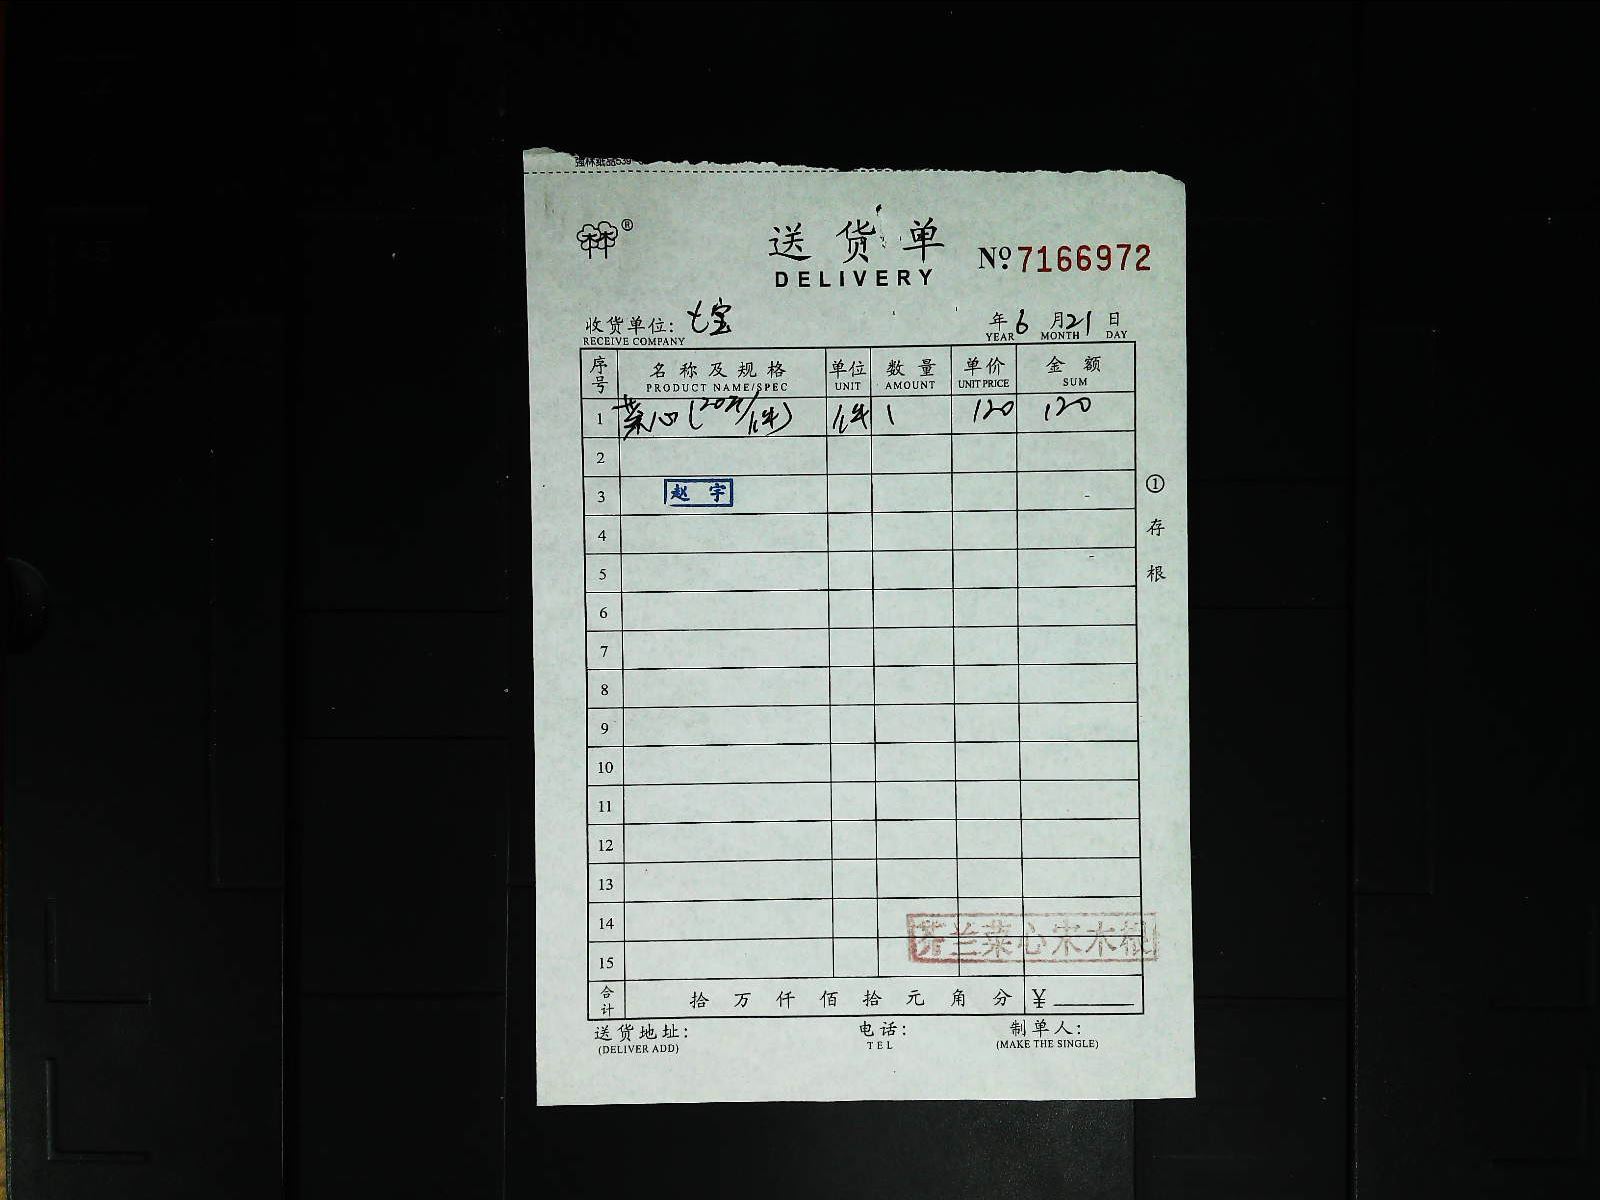 ®
送货单
DELIVERY
Nº 7166972
收货单位：七宝
RECEIVE COMPANY
年 6 月 21 日
YEAR MONTH DAY
序号 名称及规格 单位 数量 单价 金额
PRODUCT NAME/SPEC UNIT AMOUNT UNIT PRICE SUM
1 菜心(20斤/件) 件 1 120 120
2
3 赵宇
4
5
6
7
8
9
10
11
12
13
14
15
芥兰菜心宋木根
合计 拾 万 仟 佰 拾 元 角 分 ¥
送货地址： 电话： 制单人：
(DELIVER ADD) TEL (MAKE THE SINGLE)
① 存根